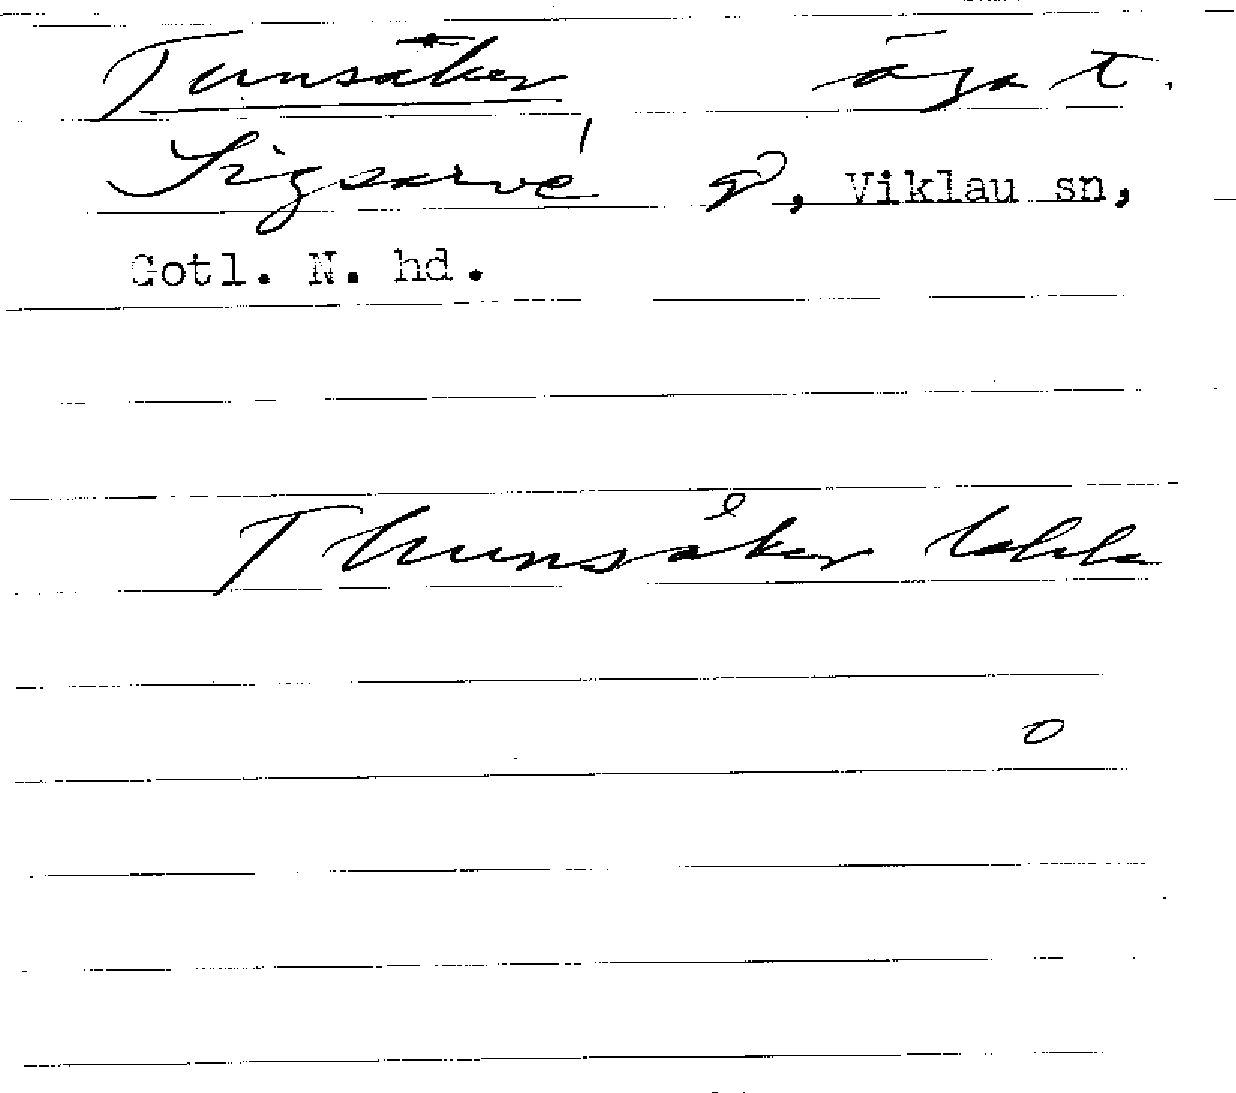 Tunsåker äga t.
Sigsarve g, Viklau sn,
Gotl. N. hd.
Thunsåker